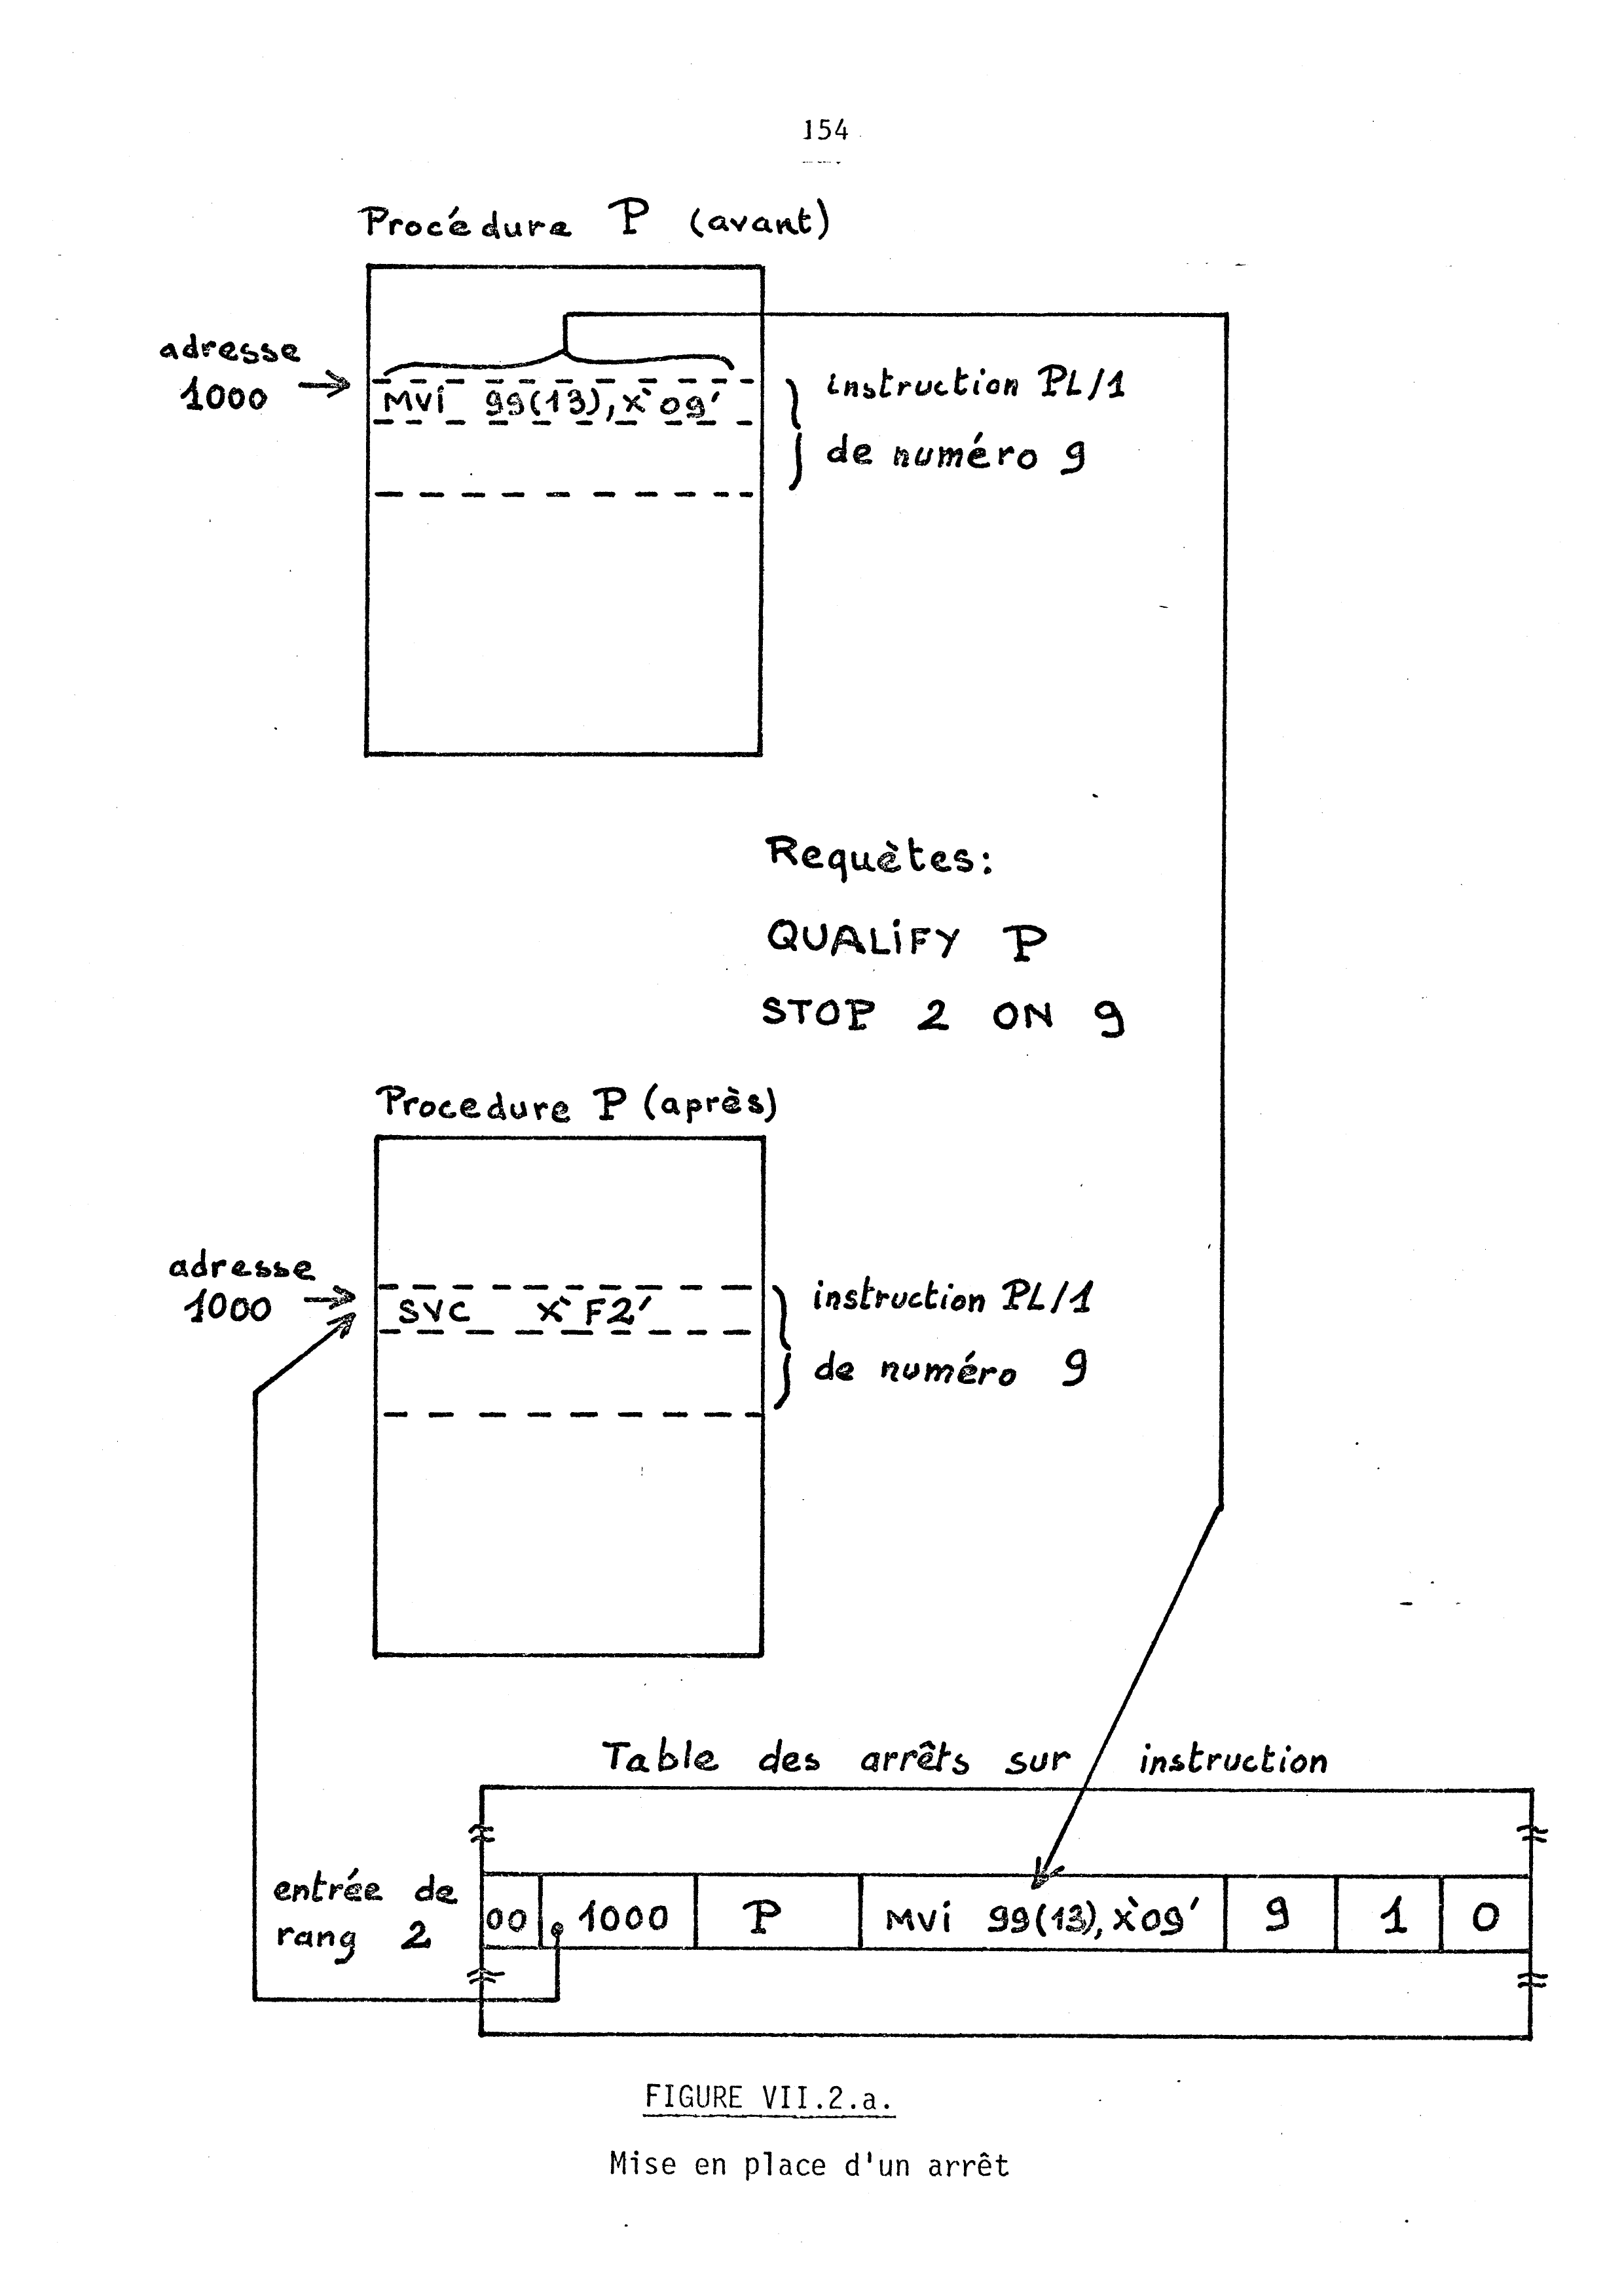 154
Procédure P (avant)
adresse
1000
MVi 99(13), X'09'
instruction PL/1
de numéro 9
Requètes:
QUALiFY P
STOP 2 ON 9
Procedure P (après)
adresse
1000
SVC X'F2'
instruction PL/1
de numéro 9
Table des arrêts sur instruction
entrée de
rang 2
00 1000 P MVi 99(13), X'09' 9 1 0
FIGURE VII.2.a.
Mise en place d'un arrêt